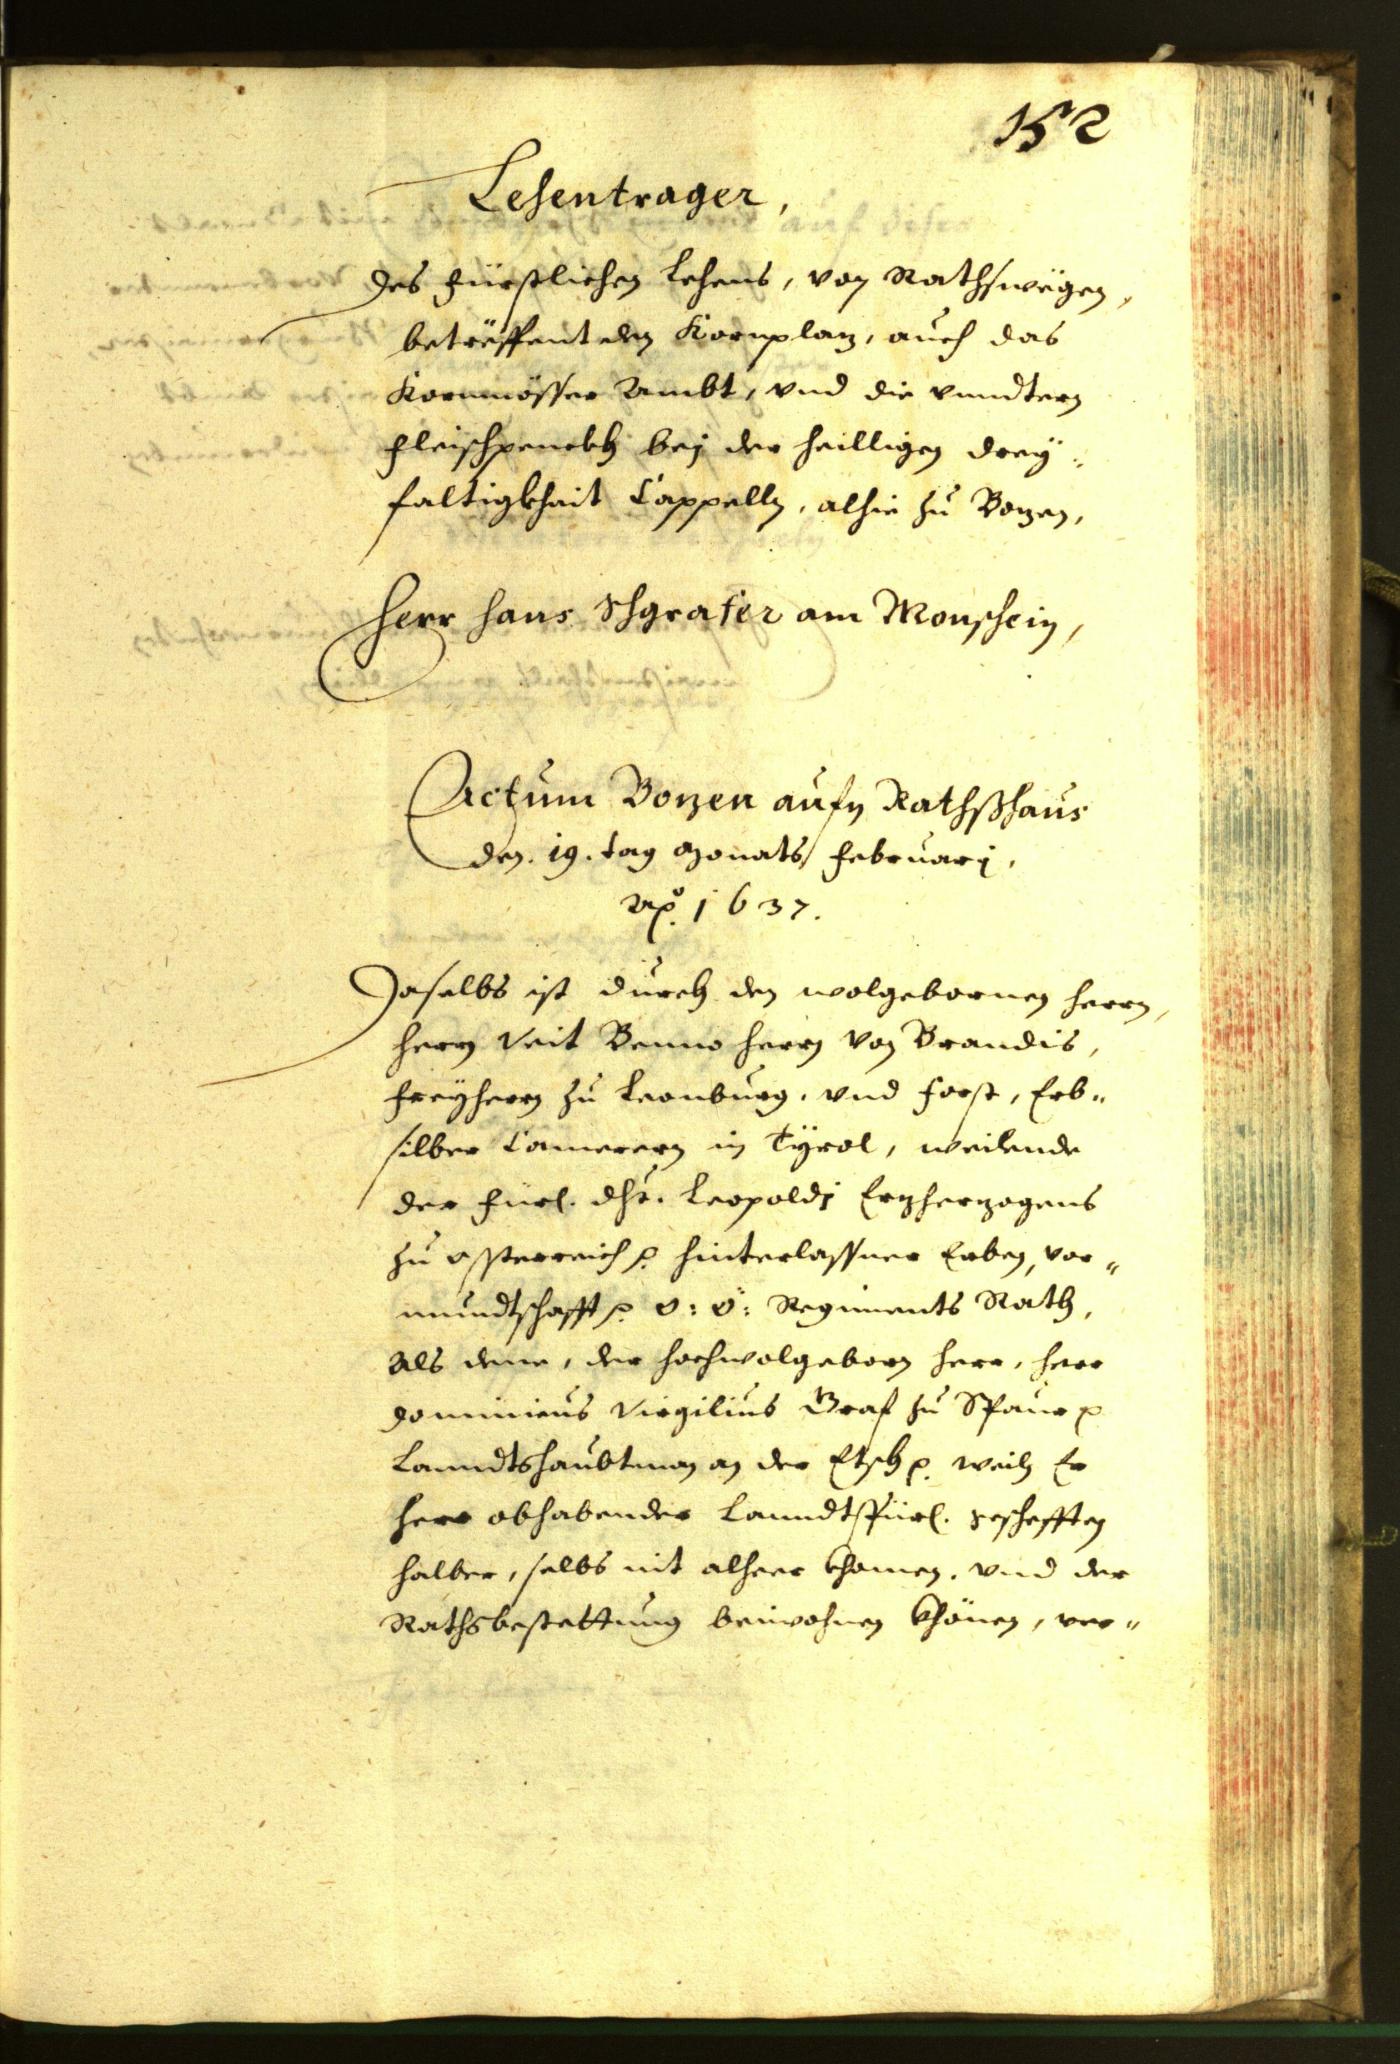 152
Lehentrager,
des fürstlichen Lehens, von Rathswëgen,
betrëffent den Kornplaz, auch das
Kornmösser Ambt, vnd die vnndtern
fleischpenckh bej der heilligen drey¬
faltigkhait Cappelln, alhie zu Bozen,
Herr Hans Schgrafer am Monschein,
Actum Bozen aufn Rathßhaus
den. 19. tag Monats Februarj,
Ao. 1637.
Daselbs ist durch den wolgebornen herrn,
herrn Veit Benno herrn von Brandis,
freyherrn zu Leonburg, vnd forst, Erb¬
silber Camerern in Tÿrol, weilende
der fürl. dht. Leopoldj Erzherzogens
zu Össterreich p. hinterlassner Erben, vor¬
mundtschafft p. O: Ö: Regiments Rath,
Als deme, der hochwolgeborn herr, herr
Dominicus Virgilius Graf zu Spaur p
Lanndtshaubtman an der Etsch p. weiln Er
herr obhabender Lanndtsfürl. geschefften
halber, selbs nit alheer khomen, vnd der
Rathsbesettung beiwohnen khönen, ver¬